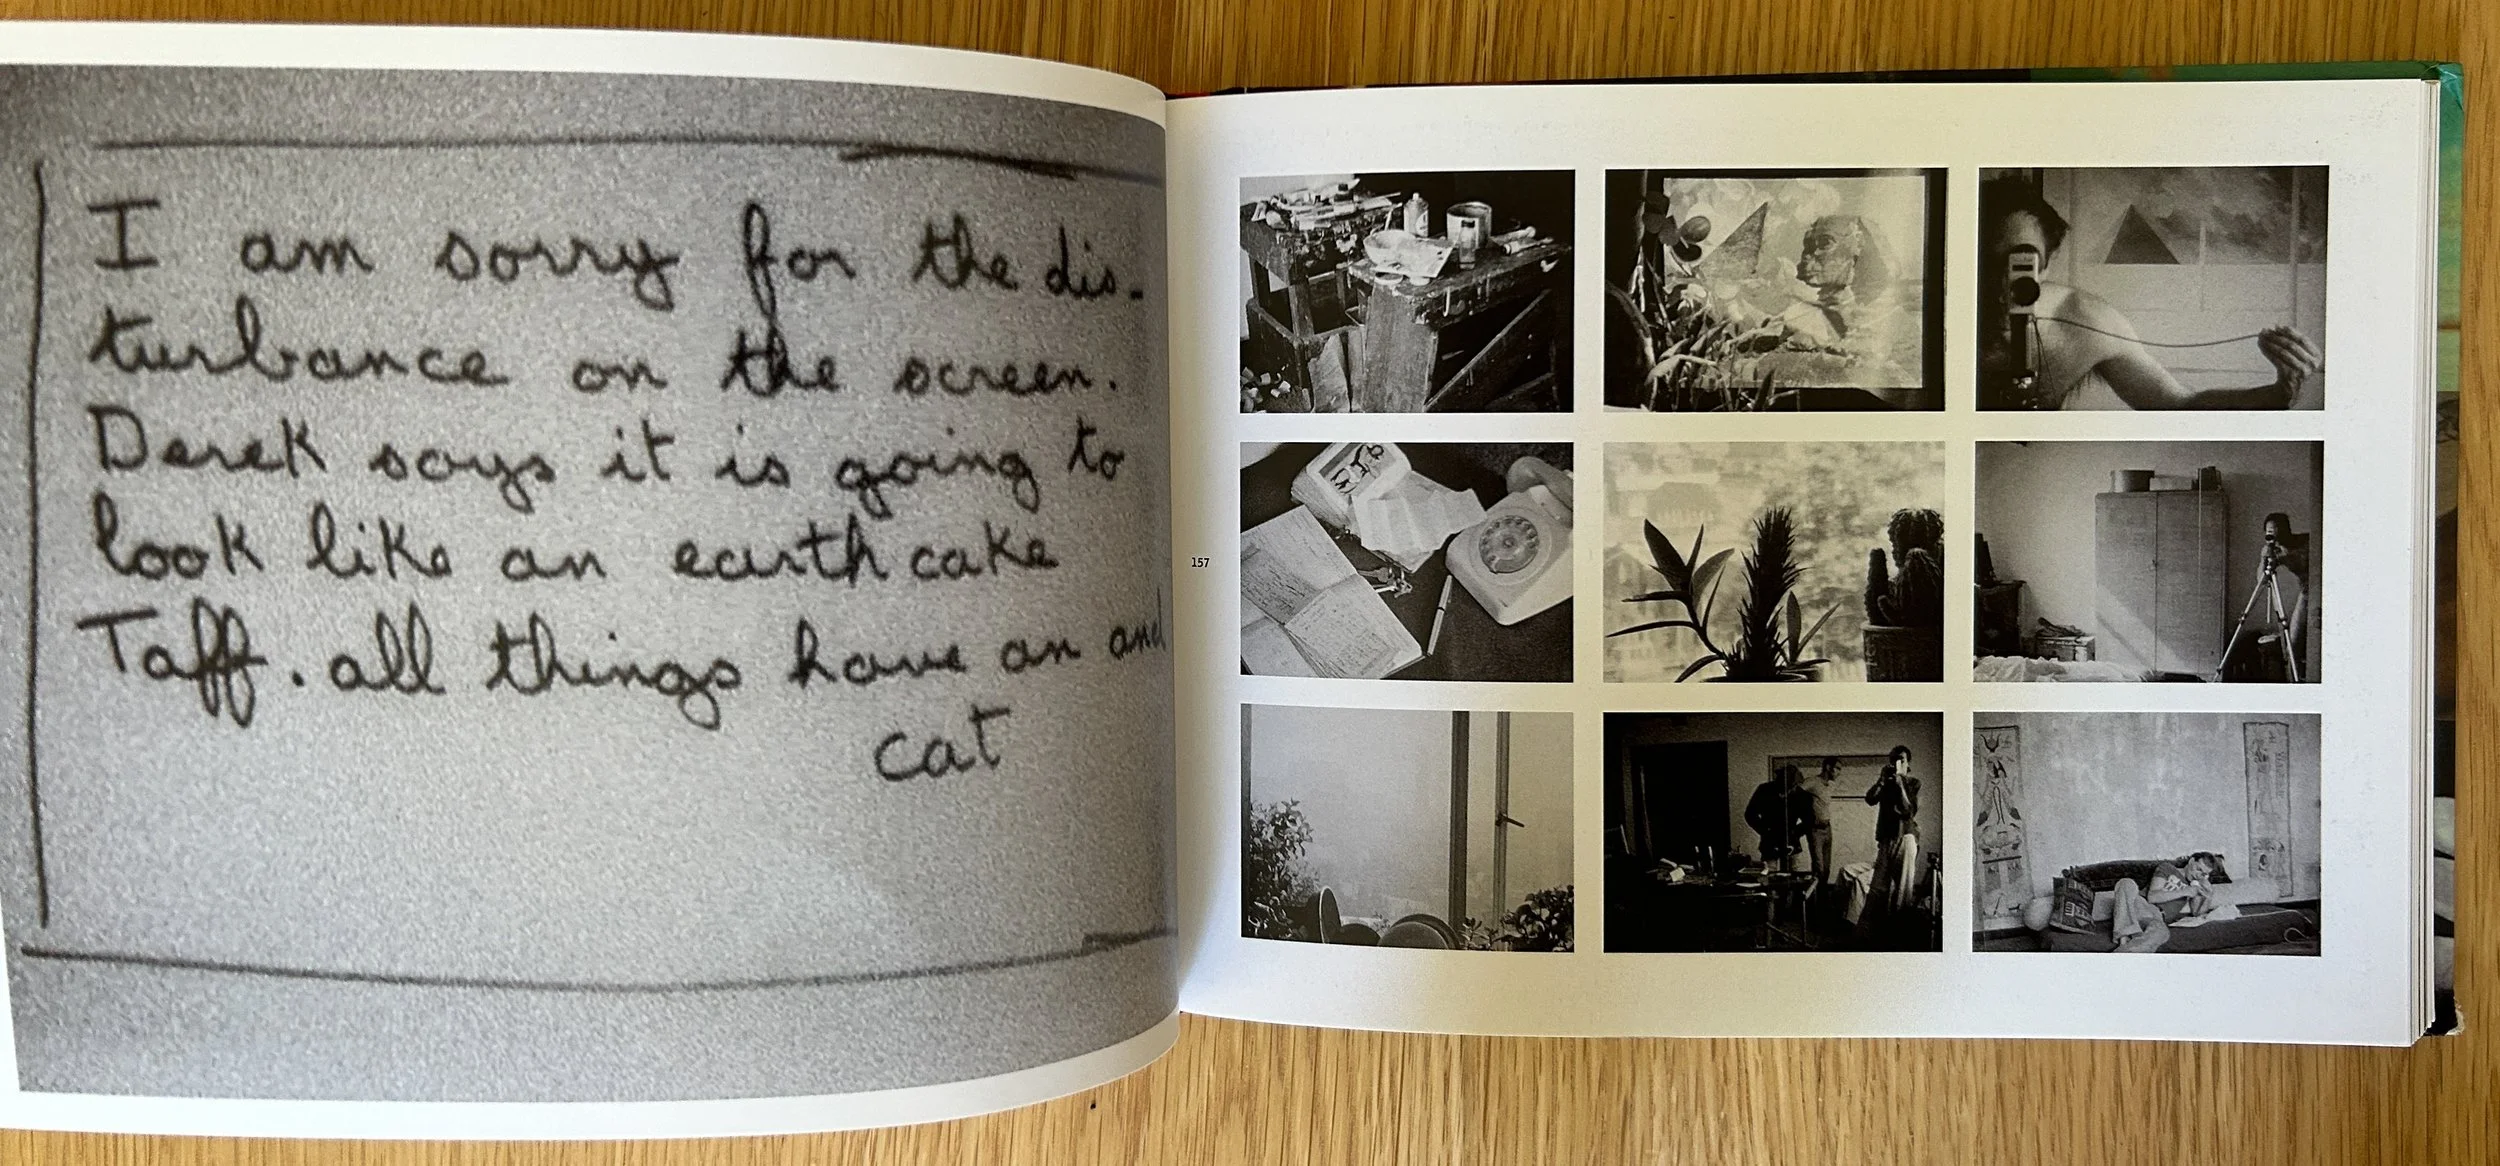 I am sorry for the dis-
turbance on the screen.
Derek says it is going to
look like an earth cake
Taff. all things have an and
cat
157